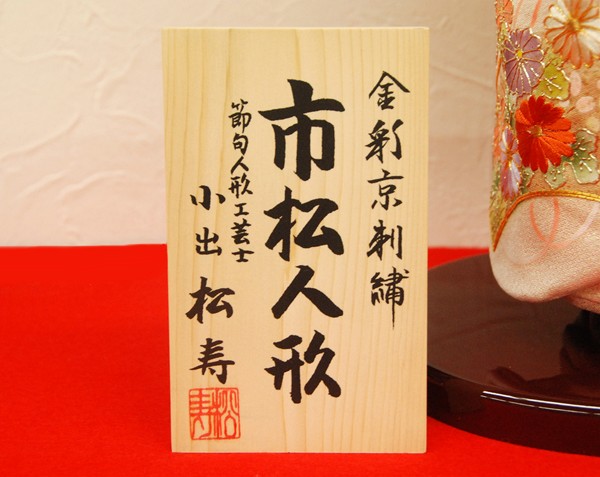 金彩京刺繍
市松人形
節句人形工芸士
小出松寿
松寿